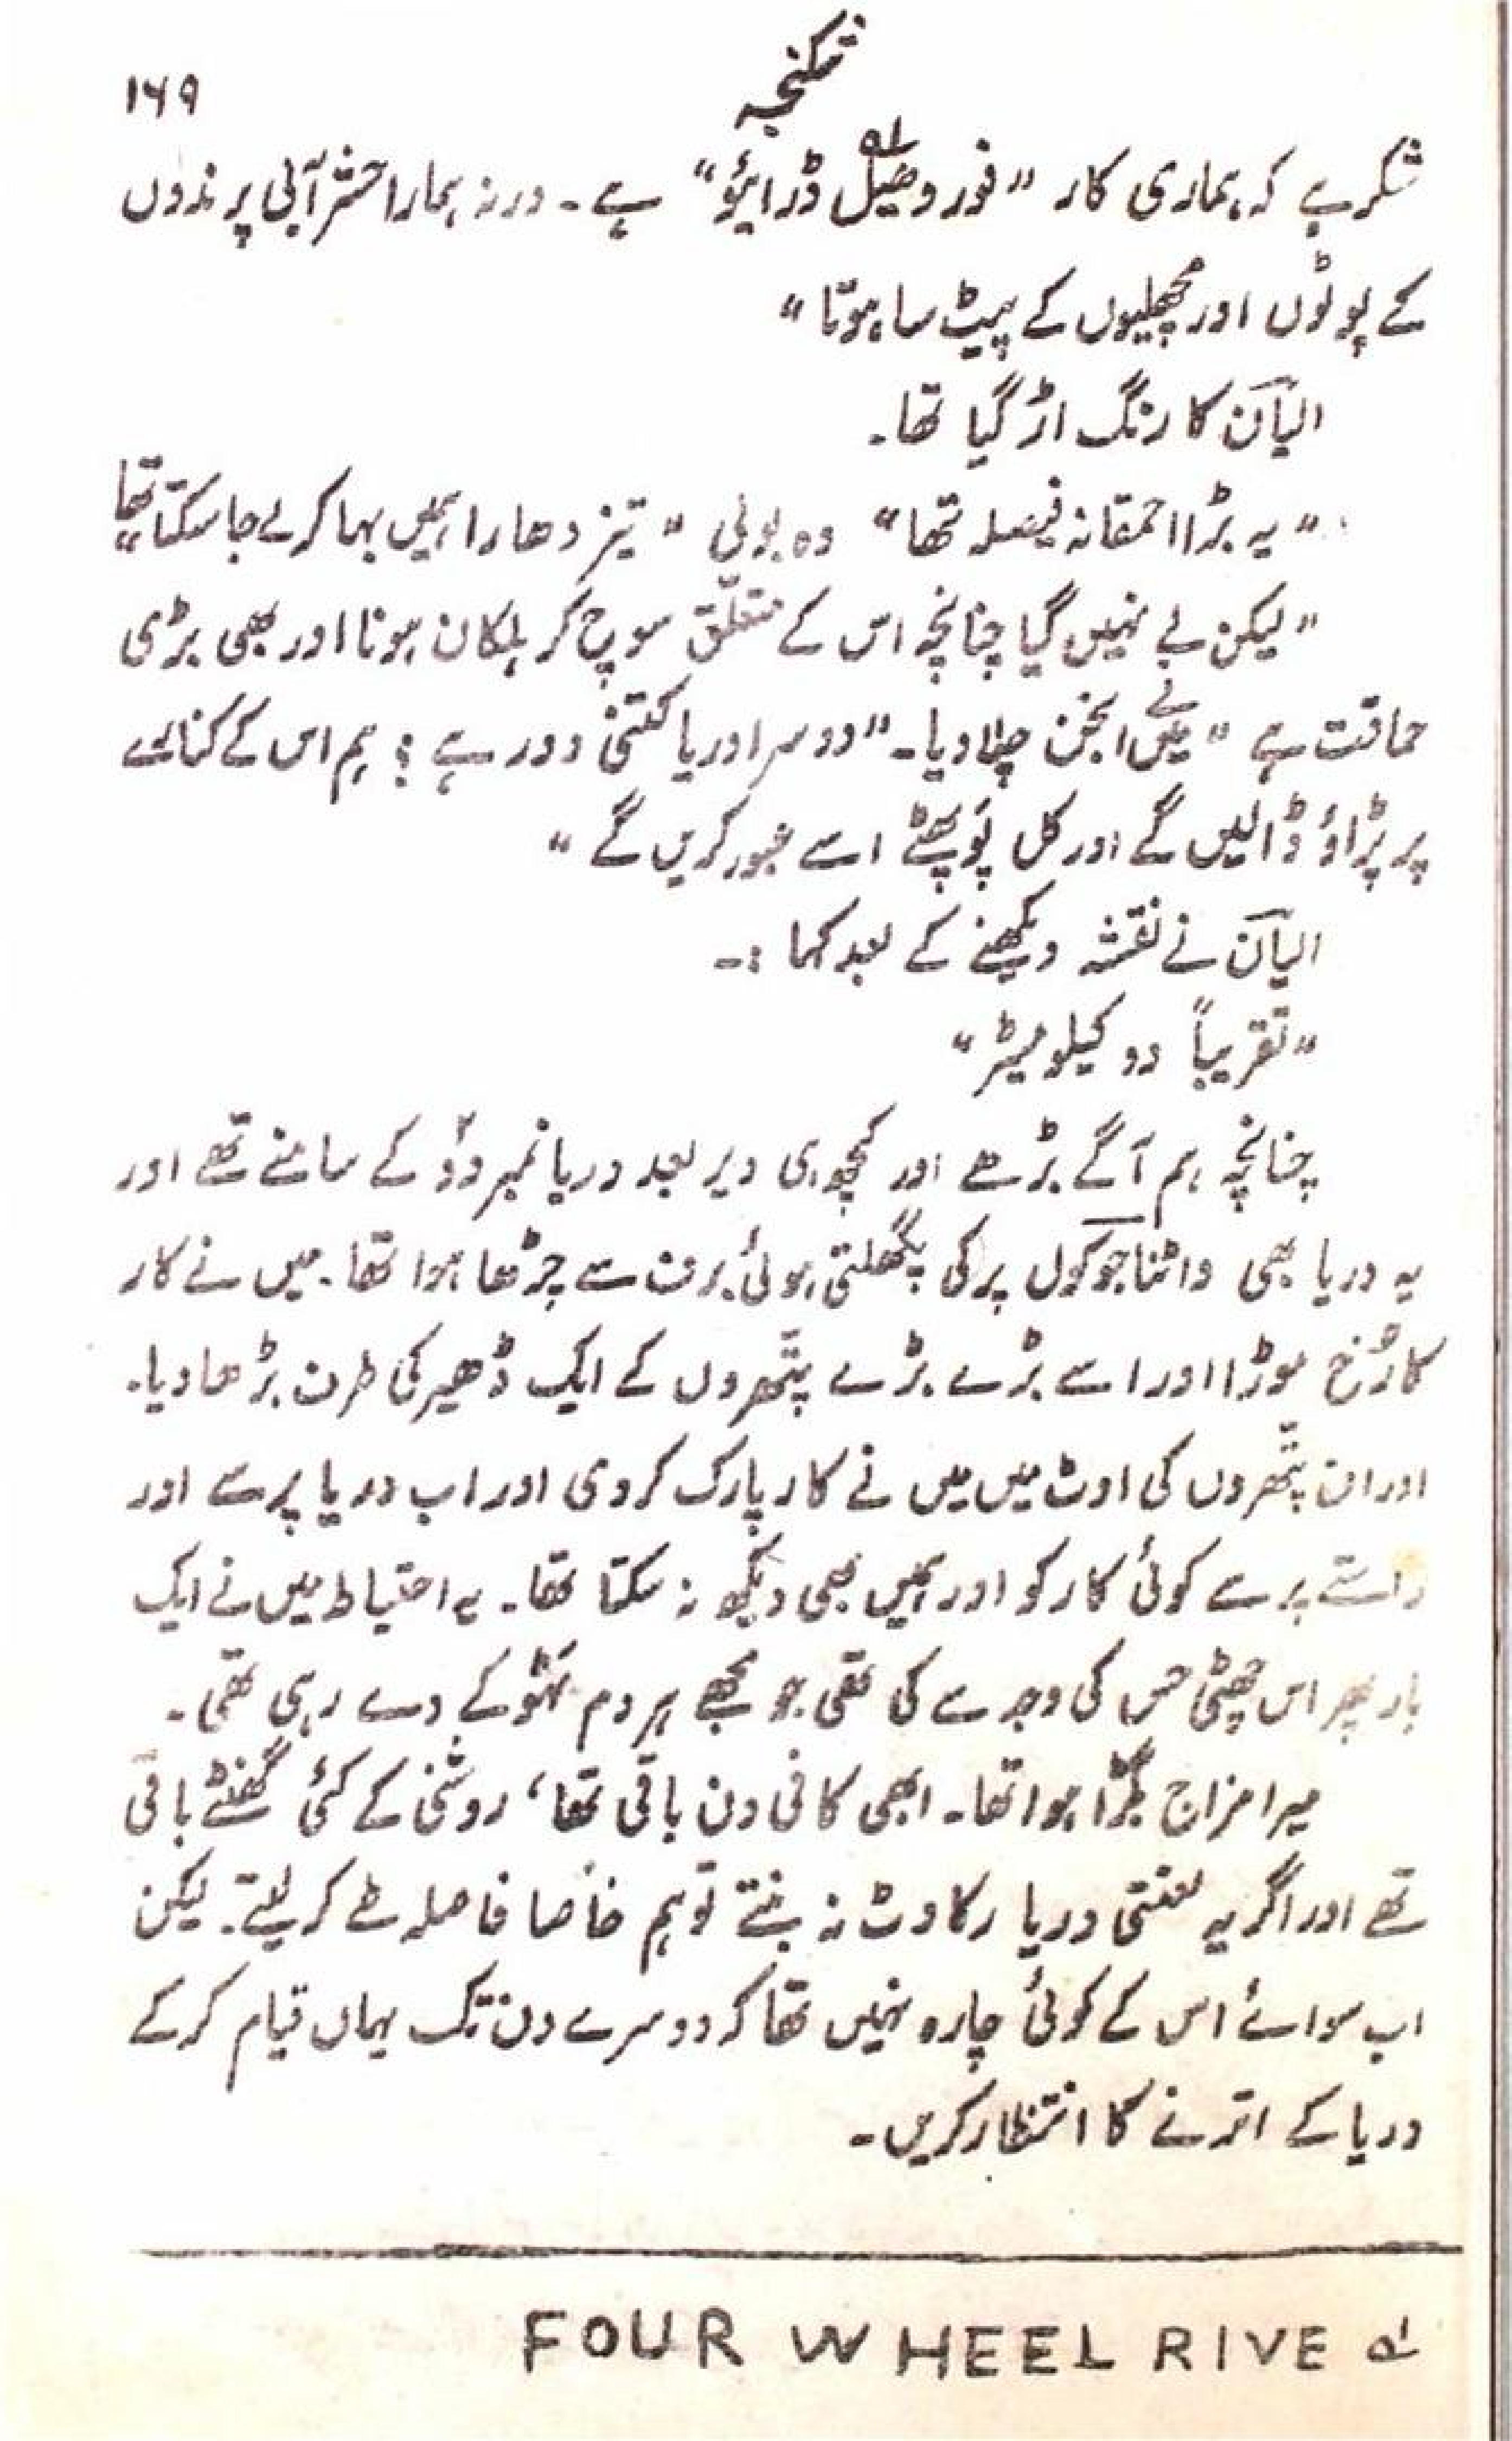 شکنجہ
۱۶۹
شکر ہے کہ ہماری کار "فور وھیل ڈرائیو" ہے۔ ورنہ ہمارا حشر آبی پرندوں
کے پوٹوں اور مچھلیوں کے پیٹ سا ہوتا"
الیآن کا رنگ اڑ گیا تھا۔
"یہ بڑا احمقانہ فیصلہ تھا" وہ بولی "تیز دھارا ہمیں بہا کر لے جا سکتا تھا"
"لیکن لے نہیں گیا چنانچہ اس کے متعلّق سوچ کر ہلکان ہونا اور بھی بڑی
حماقت ہے" میں نے انجن چلا دیا۔ "دوسرا دریا کتنی دور ہے؟ ہم اس کے کنارے
پر پڑاؤ ڈالیں گے اور کل پَو پھٹے اسے عبور کریں گے"
الیآن نے نقشہ دیکھنے کے بعد کہا :۔
"تقریباً دو کیلو میٹر"
چنانچہ ہم آگے بڑھے اور کچھ ہی دیر بعد دریا نمبر دو کے سامنے تھے اور
یہ دریا بھی واٹناجوکول پر کی پگھلتی ہوئی برف سے چڑھا ہوا تھا۔ میں نے کار
کا رُخ موڑا اور اسے بڑے بڑے پتّھروں کے ایک ڈھیر کی طرف بڑھا دیا۔
اور ان پتّھروں کی اوٹ میں میں نے کار پارک کر دی اور اب دریا پر سے اور
راستے پر سے کوئی کار کو اور ہمیں بھی دیکھ نہ سکتا تھا۔ یہ احتیاط میں نے ایک
بار پھر اس چھٹی حس کی وجہ سے کی تھی جو مجھے ہر دم ٹہوکے دے رہی تھی۔
میرا مزاج بگڑا ہوا تھا۔ ابھی کافی دن باقی تھا، روشنی کے کئی گھنٹے باقی
تھے اور اگر یہ لعنتی دریا رکاوٹ نہ بنتے تو ہم خاصا فاصلہ طے کر لیتے۔ لیکن
اب سوائے اس کے کوئی چارہ نہیں تھا کہ دوسرے دن تک یہاں قیام کر کے
دریا کے اترنے کا انتظار کریں۔
FOUR WHEEL RIVE